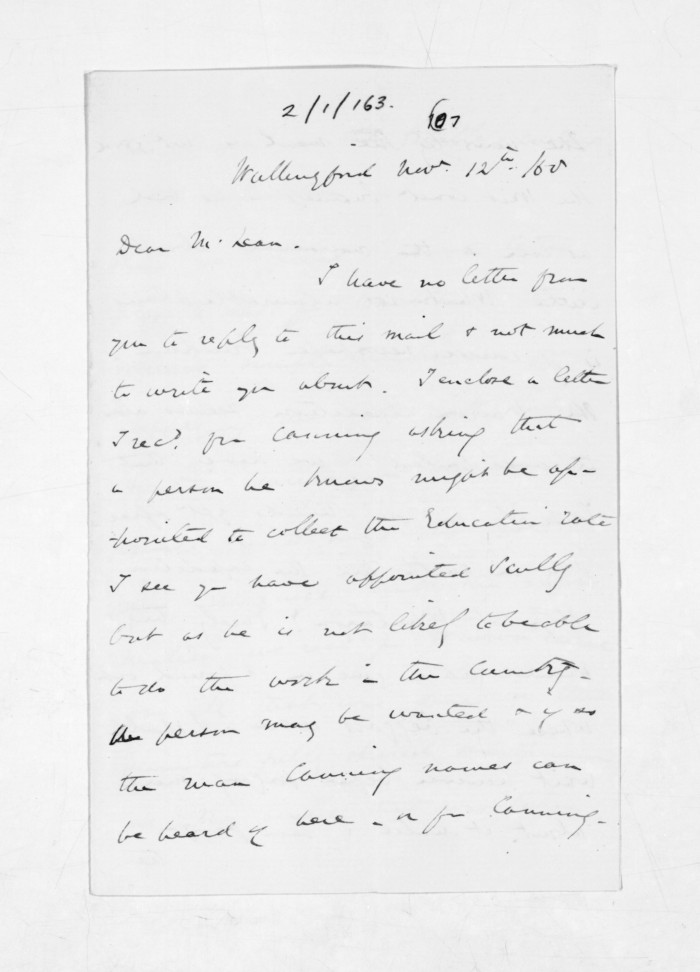 2/1/163.
107
Wallingford Novr. 12th. /60
Dear McLean.
I have no letter from
you to reply to this mail & not much
to write you about. I enclose a letter
I recd. fm Canning asking that
a person he knows might be ap-
pointed to collect the Education rate
I see you have appointed Scully
but as he is not likely to be able
to do the work in the Country -
person may be wanted & if so
the man Canning names can
be heard of here - or fm Canning -